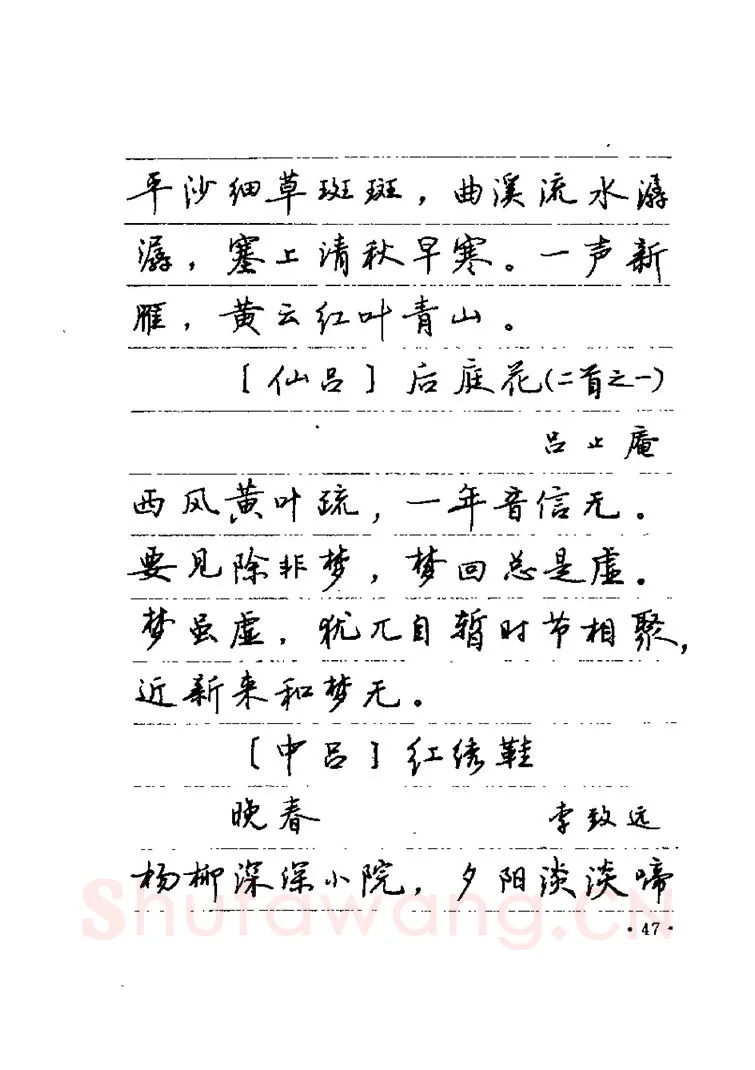 平沙细草斑斑，曲溪流水潺
潺，塞上清秋早寒。一声新
雁，黄云红叶青山。
［仙吕］后庭花(二首之一)
吕止庵
西风黄叶疏，一年音信无。
要见除非梦，梦回总是虚。
梦虽虚，犹兀自暂时节相聚，
近新来和梦无。
［中吕］红绣鞋
晚春 李致远
杨柳深深小院，夕阳淡淡啼
Shufawang.CN
·47·